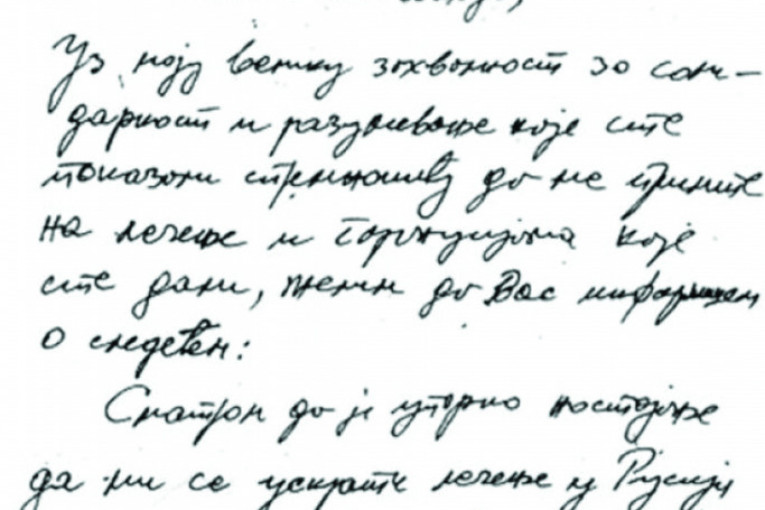 Уз моју велику захвалност за соли-
дарност и разумевање које сте
показали спремношћу да ме примите
на лечење и гаранцијама које
сте дали, желим да Вас информишем
о следећем:
Сматрам да је упорно настојање
да ми се ускрати лечење у Русији